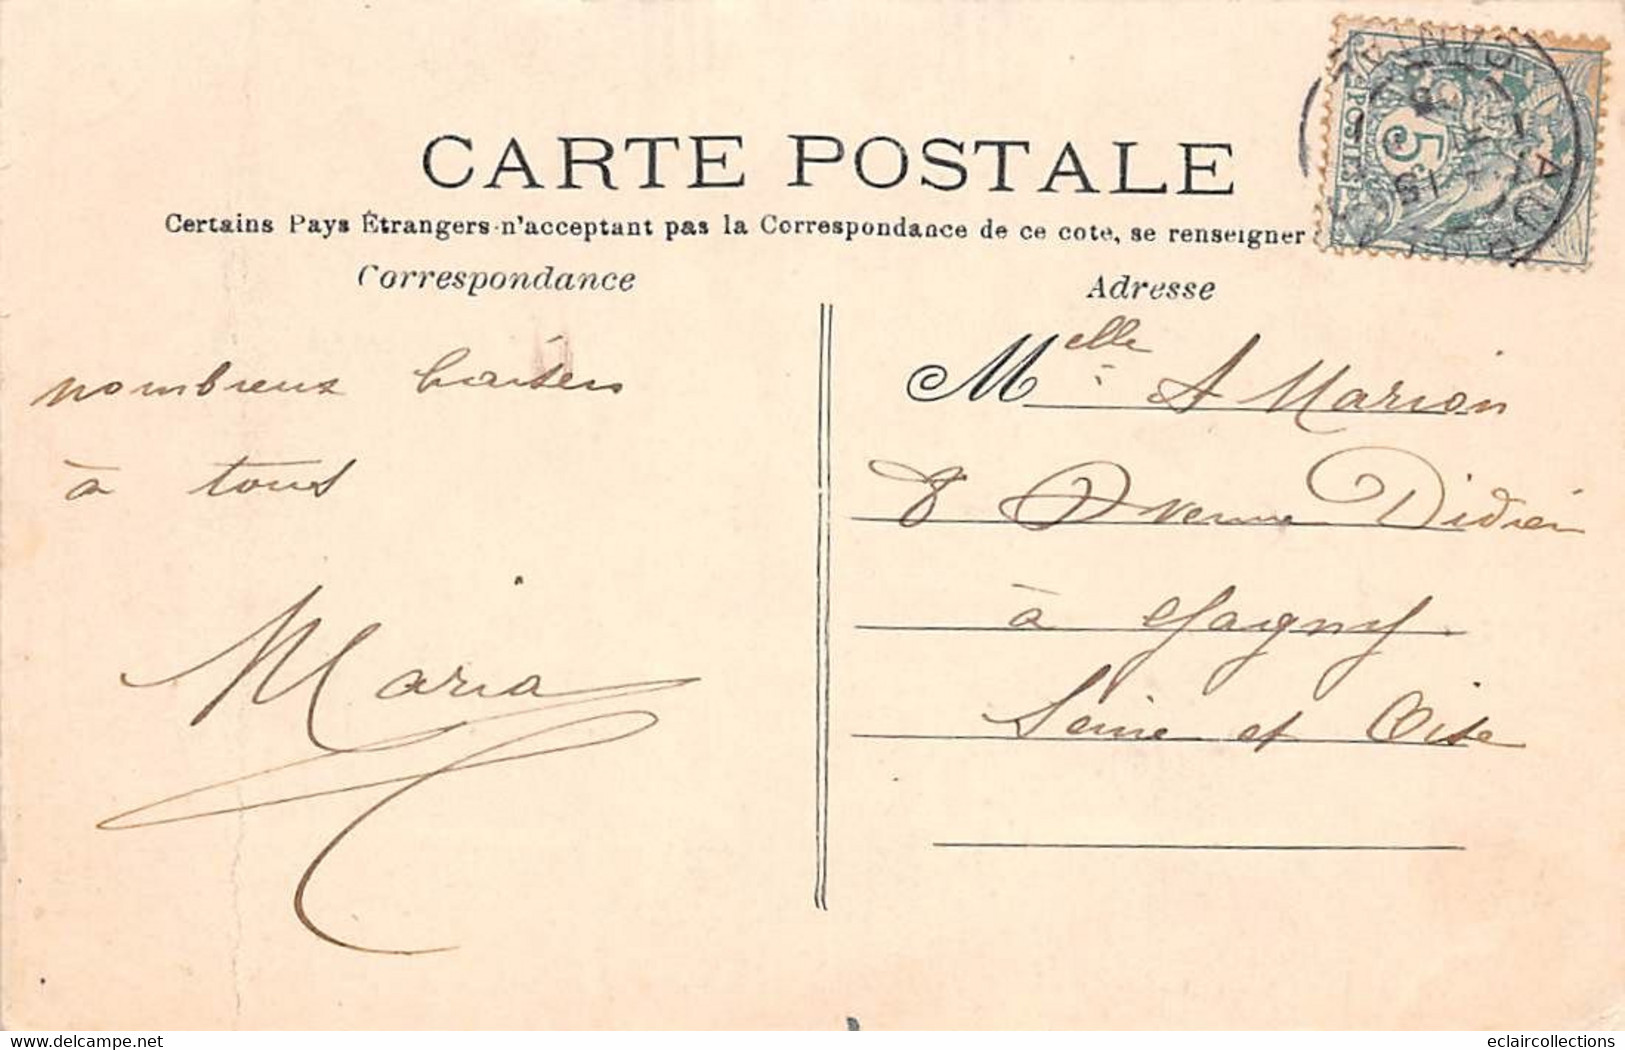 CARTE POSTALE
Certains Pays Étrangers n'acceptant pas la Correspondance de ce coté, se renseigner
Correspondance
Adresse
nombreux baisers
à tous
Maria
Melle A Marion
8 Avenue Didier
à Gagny
Seine et Oise
5
POSTES
delcampe.net
eclaircollections